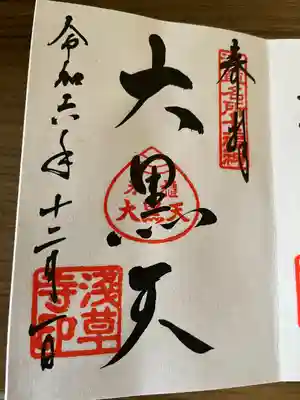 奉拝
大黒天
米櫃
大黒天
令和六年十二月一日
淺草
寺印